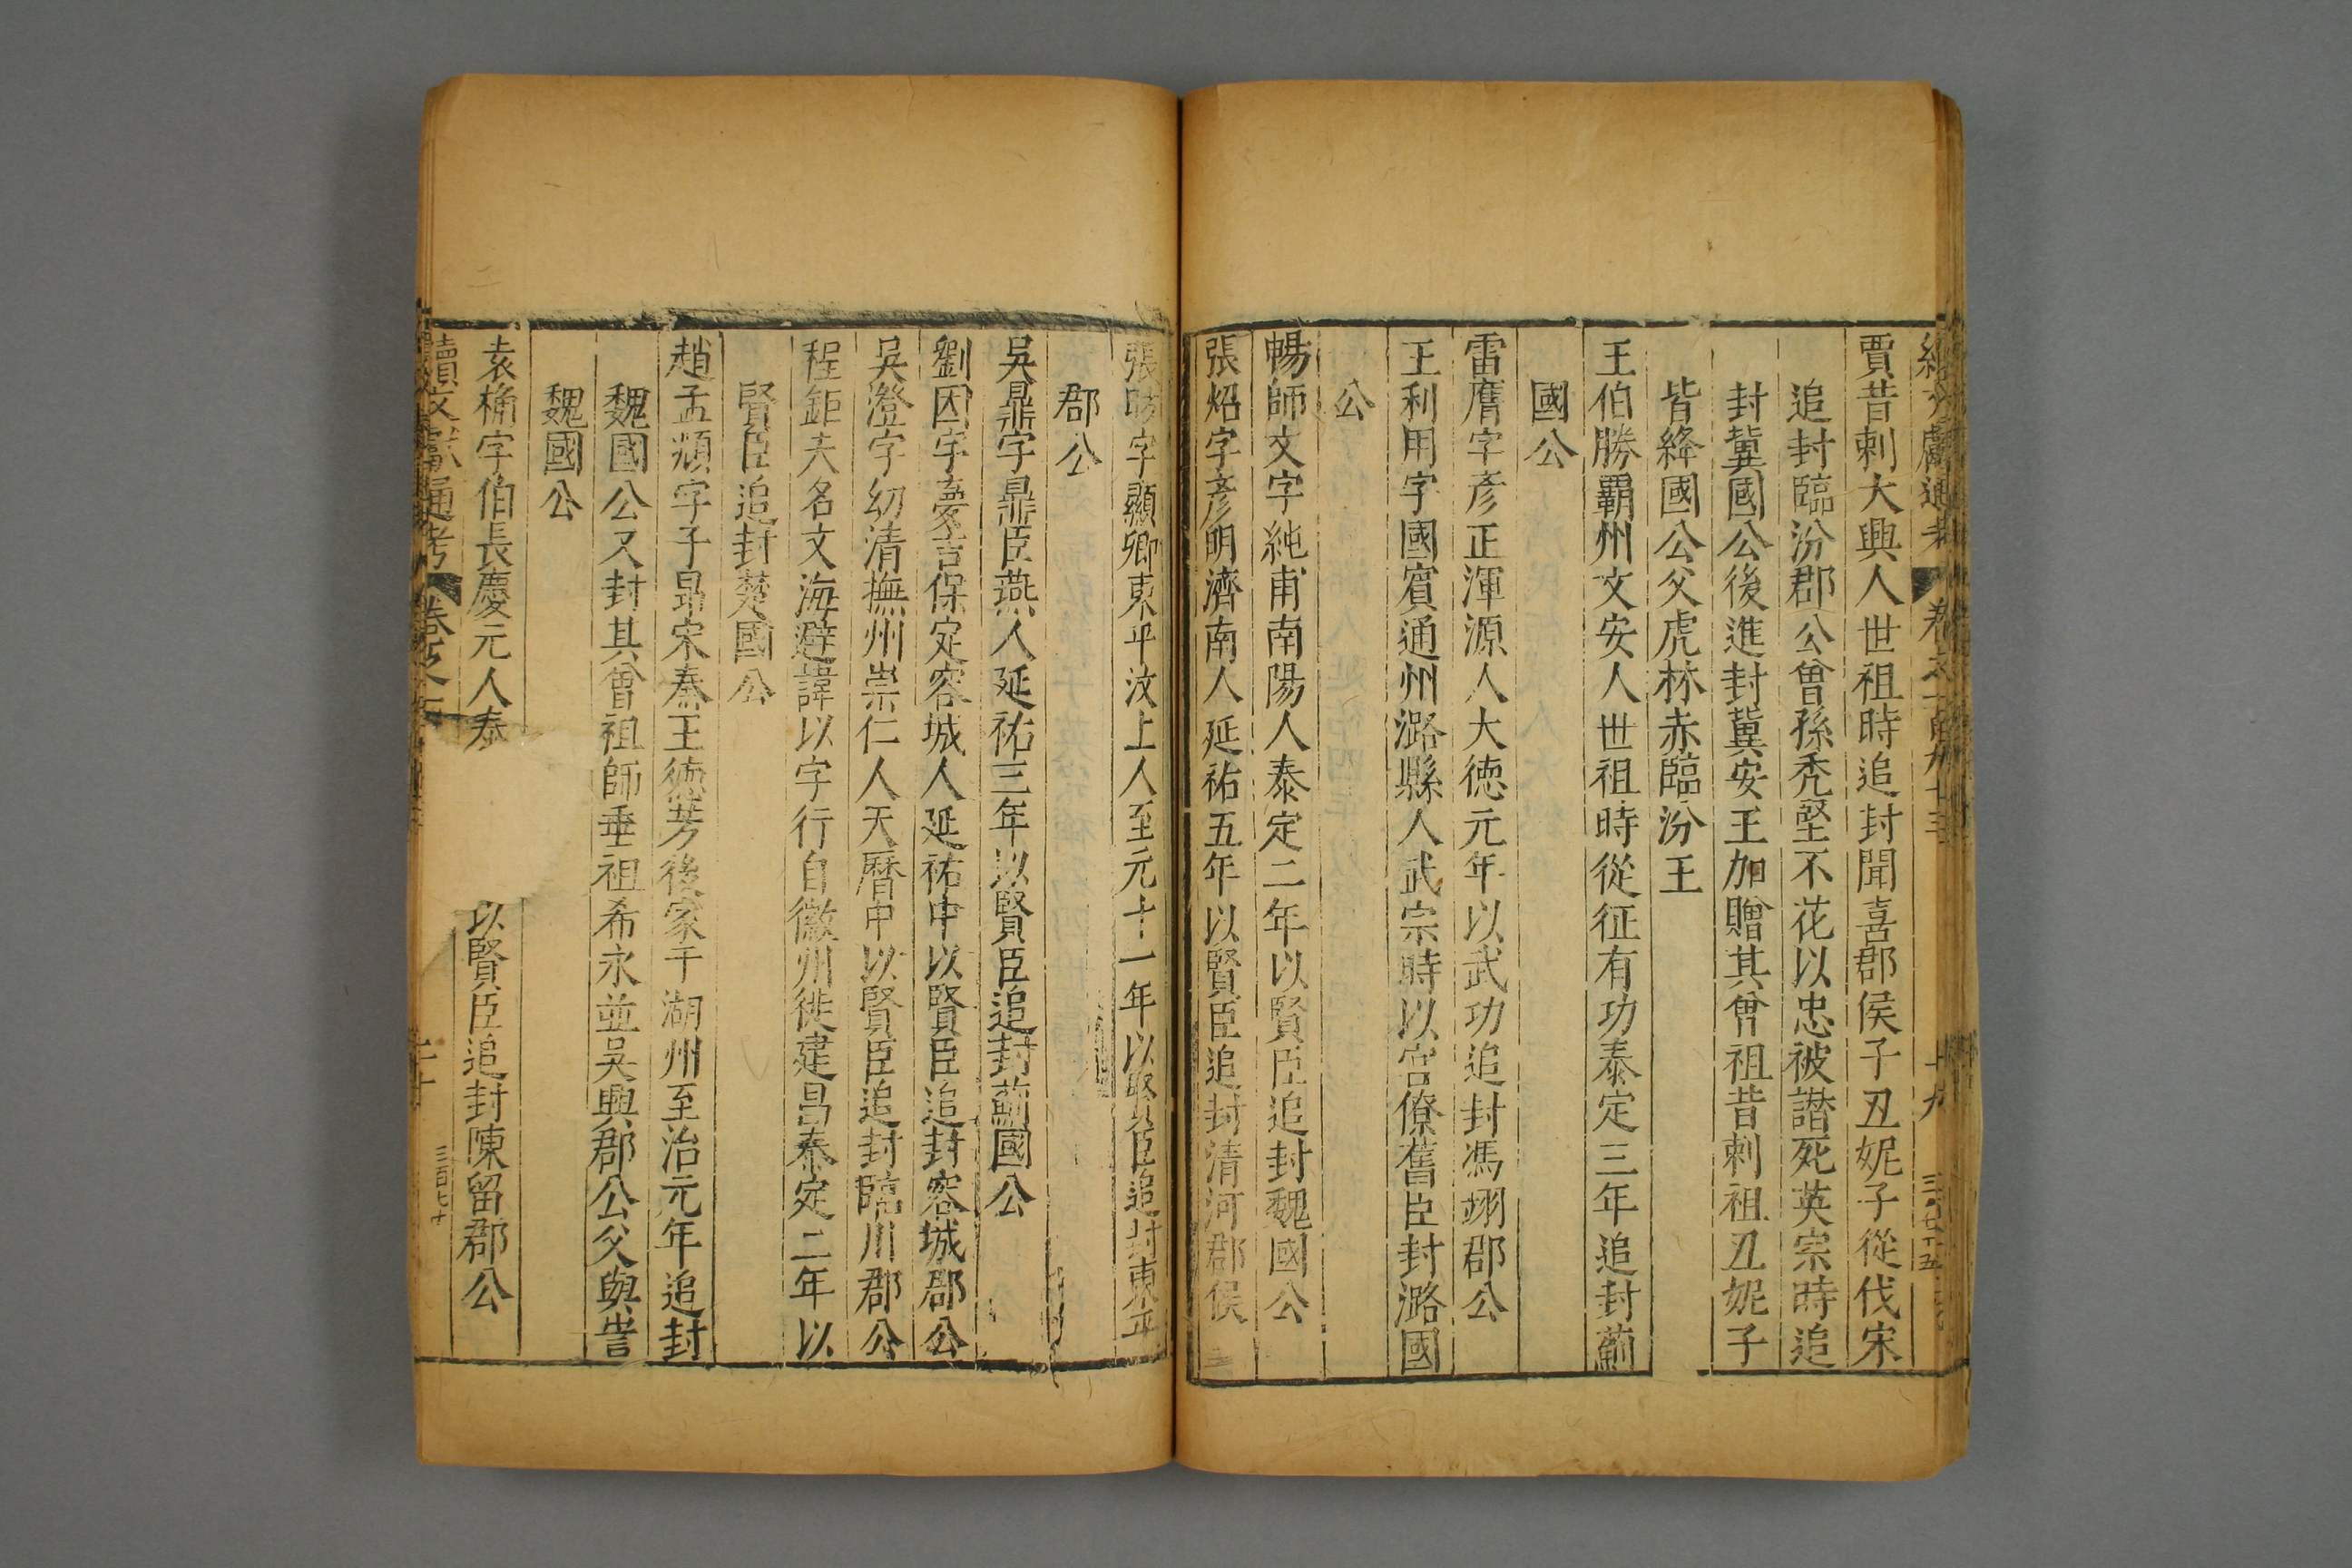 賈昔剌大興人世祖時追封聞喜郡侯子丑妮子從伐宋
追封臨汾郡公曾孫禿堅不花以忠被譖死英宗時追
封冀國公後進封冀安王加贈其曾祖昔剌祖丑妮子
皆絳國公父虎林赤臨汾王
王伯勝霸州文安人世祖時從征有功泰定三年追封薊
國公
雷膺字彥正渾源人大德元年以武功追封馮翊郡公
王利用字國賓通州潞縣人武宗時以宮僚舊臣封潞國
公
暢師文字純甫南陽人泰定二年以賢臣追封魏國公
張炤字彥明濟南人延祐五年以賢臣追封清河郡侯
張 字顯卿東平汶上人至元十一年以賢臣追封東平
郡公
吳鼎字鼎臣燕人延祐三年以賢臣追封薊國公
劉因字夢吉保定容城人延祐中以賢臣追封容城郡公
吳澄字幼清撫州崇仁人天曆中以賢臣追封臨川郡公
程鉅夫名文海避諱以字行自徽州徙建昌泰定二年以
賢臣追封楚國公
趙孟頫字子昻宋秦王德芳後家于湖州至治元年追封
魏國公又封其曾祖師垂祖希永並吳興郡公父與訔
魏國公
袁桷字伯長慶元人泰 以賢臣追封陳留郡公
續文獻通考 卷之